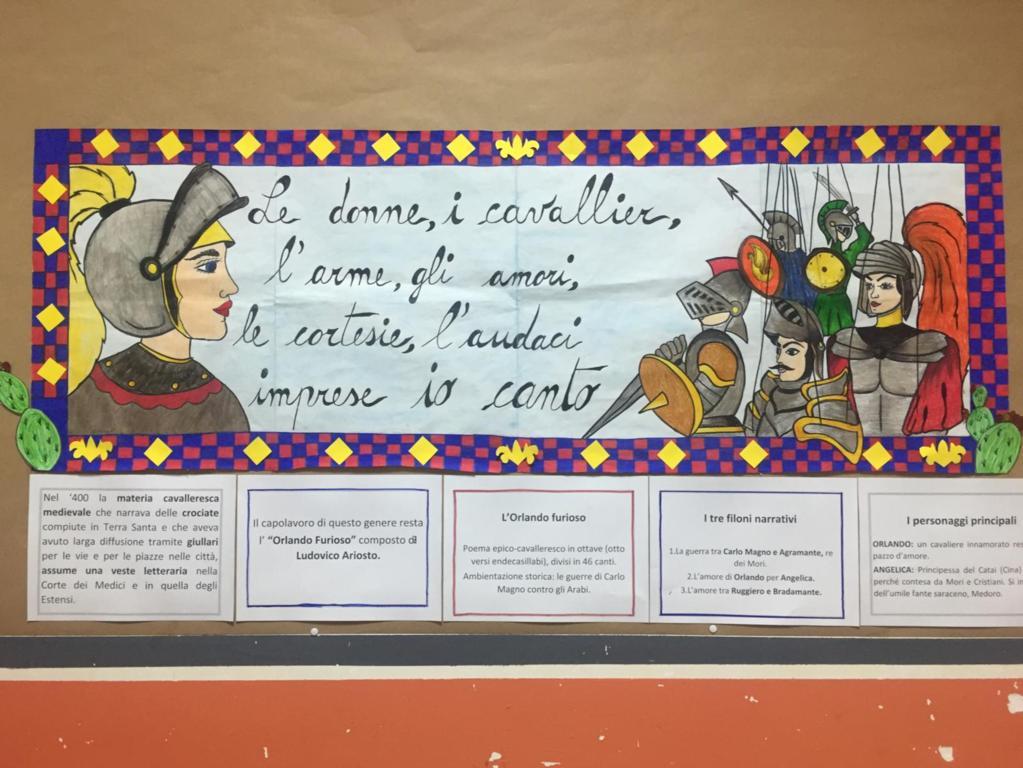 Le donne, i cavallier,
l'arme, gli amori,
le cortesie, l'audaci
imprese io canto
Nel '400 la materia cavalleresca
medievale che narrava delle crociate
compiute in Terra Santa e che aveva
avuto larga diffusione tramite giullari
per le vie e per le piazze nelle città,
assume una veste letteraria nella
Corte dei Medici e in quella degli
Estensi.
Il capolavoro di questo genere resta
l' "Orlando Furioso" composto di
Ludovico Ariosto.
L'Orlando furioso
Poema epico-cavalleresco in ottave (otto
versi endecasillabi), divisi in 46 canti.
Ambientazione storica: le guerre di Carlo
Magno contro gli Arabi.
I tre filoni narrativi
1.La guerra tra Carlo Magno e Agramante, re
dei Mori.
2.L'amore di Orlando per Angelica.
3.L'amore tra Ruggiero e Bradamante.
I personaggi principali
ORLANDO: un cavaliere innamorato res
pazzo d'amore.
ANGELICA: Principessa del Catai (Cina)
perché contesa da Mori e Cristiani. Si in
dell'umile fante saraceno, Medoro.